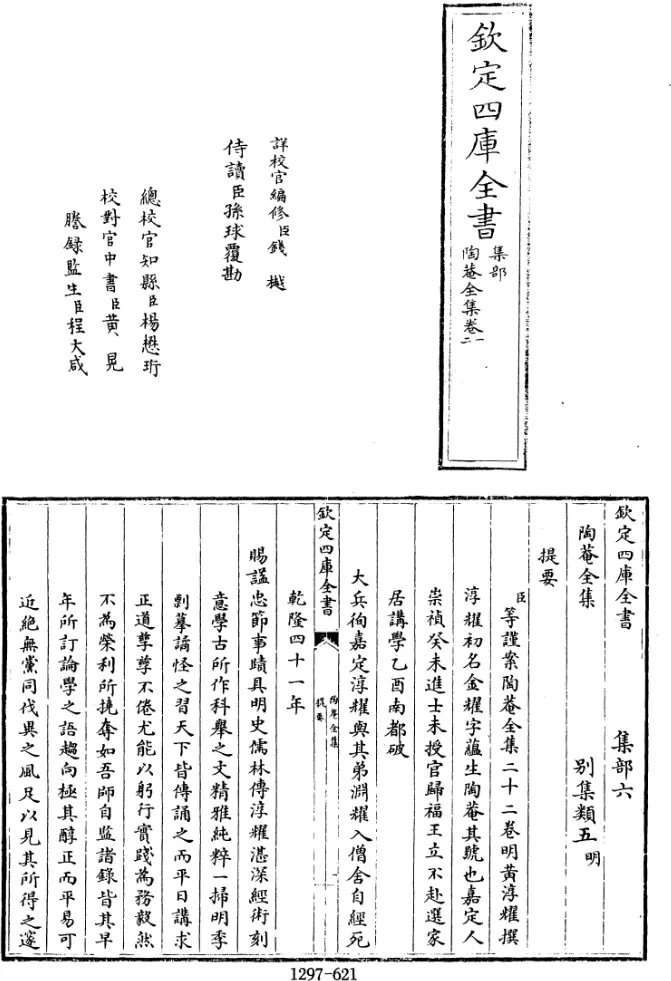 欽定四庫全書
集部
陶菴全集卷一
二
詳校官編修臣錢樾
侍讀臣孫球覆勘
總校官知縣臣楊懋珩
校對官中書臣黃晃
謄錄監生臣程大咸
欽定四庫全書 集部六
陶菴全集 別集類五明
提要
臣等謹案陶菴全集二十二卷明黃淳耀撰
淳耀初名金耀字蘊生陶菴其號也嘉定人
崇禎癸未進士未授官歸福王立不赴選家
居講學乙酉南都破
大兵徇嘉定淳耀與其弟淵耀入僧舍自經死
欽定四庫全書
陶菴全集
提要
乾隆四十一年
賜諡忠節事蹟具明史儒林傳淳耀湛深經術刻
意學古所作科舉之文精雅純粹一掃明季
剽摹譎怪之習天下皆傳誦之而平日講求
正道孳孳不倦尤能以躬行實踐為務毅然
不為榮利所撓奪如吾師自監諸錄皆其早
年所訂論學之語趨向極其醇正而平易可
近絕無黨同伐異之風足以見其所得之邃
1297-621